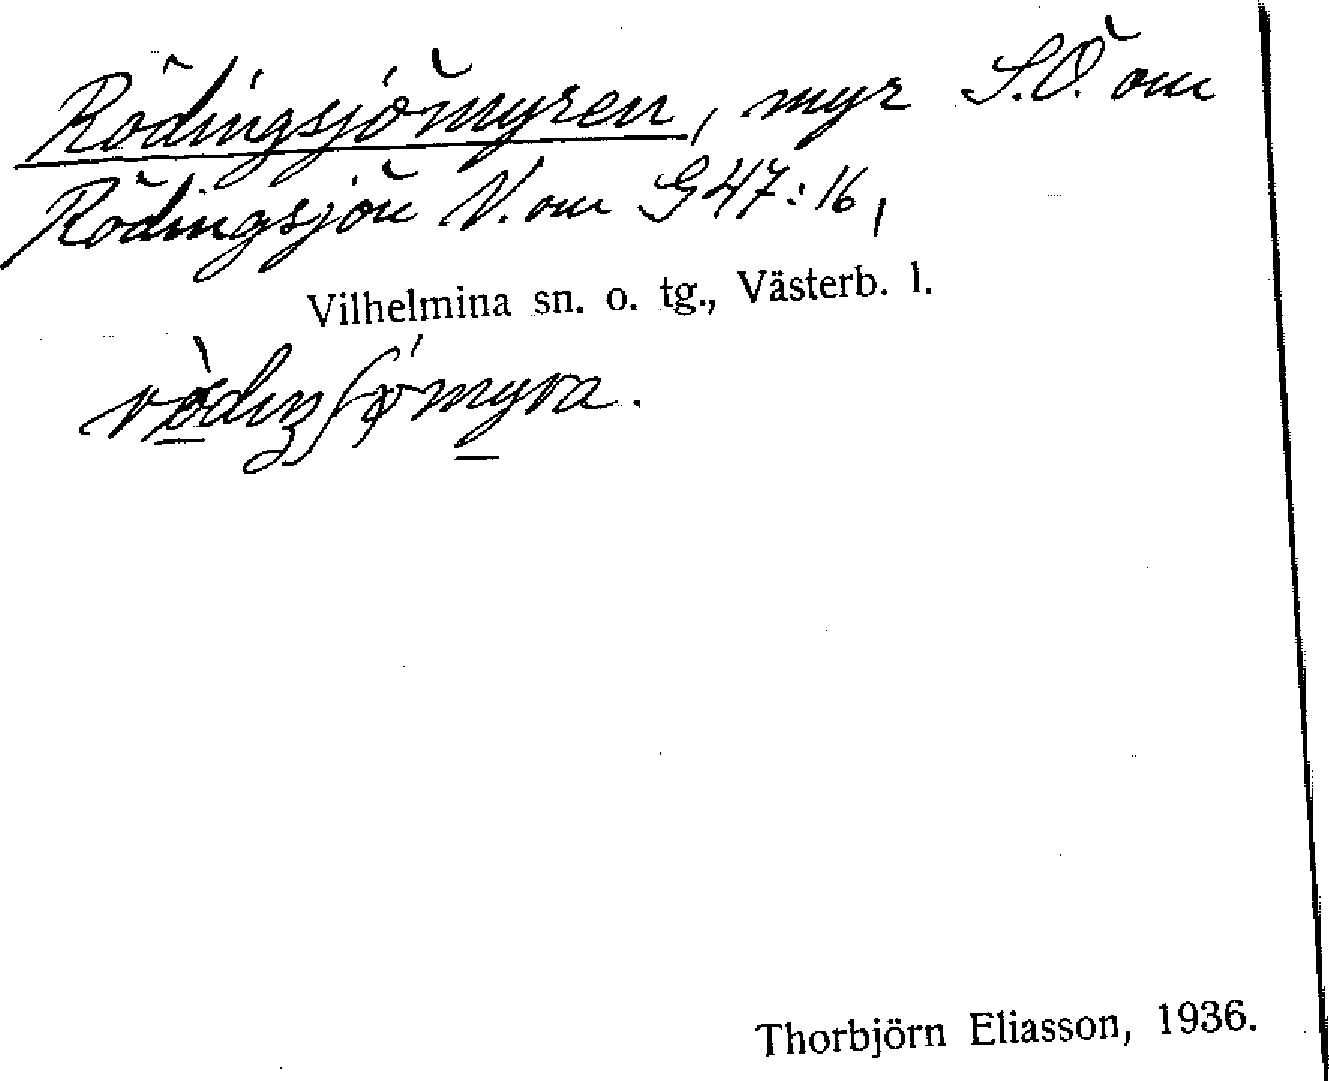 Rödingsjömyren, myr S.Ö. om
Rödingsjön V. om G47:16,
Vilhelmina sn. o. tg., Västerb. l.
Thorbjörn Eliasson, 1936.